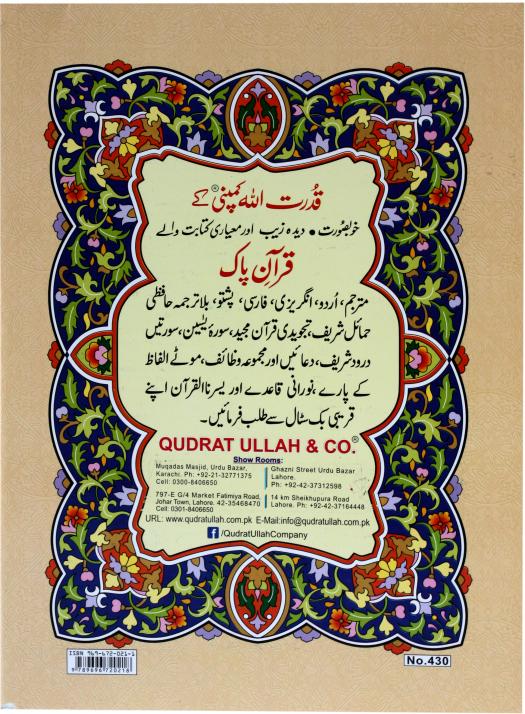 قُدرت اللہ کمپنی® کے
خوبصُورت • دیدہ زیب اور معیاری کتابت والے
قرآن پاک
مترجم، اُردو، انگریزی، فارسی، پشتو، بلا ترجمہ حافظی
حمائل شریف، تجویدی قرآن مجید، سورۂ یٰسین، سورتیں
درود شریف، دعائیں اور مجموعہ وظائف، موٹے الفاظ
کے پارے، نورانی قاعدے اور یسرنا القرآن اپنے
قریبی بک سٹال سے طلب فرمائیں۔
QUDRAT ULLAH & CO.®
Show Rooms:
Muqadas Masjid, Urdu Bazar,
Karachi. Ph: +92-21-32771375
Cell: 0300-8406650
Ghazni Street Urdu Bazar
Lahore.
Ph: +92-42-37312598
797-E G/4 Market Fatimiya Road,
Johar Town, Lahore. 42-35468470
Cell: 0301-8406650
14 km Sheikhupura Road
Lahore. Ph: +92-42-37164448
URL: www.qudratullah.com.pk E-Mail:info@qudratullah.com.pk
f /QudratUllahCompany
ISBN 969-672-021-1
9 789696 720218
No.430